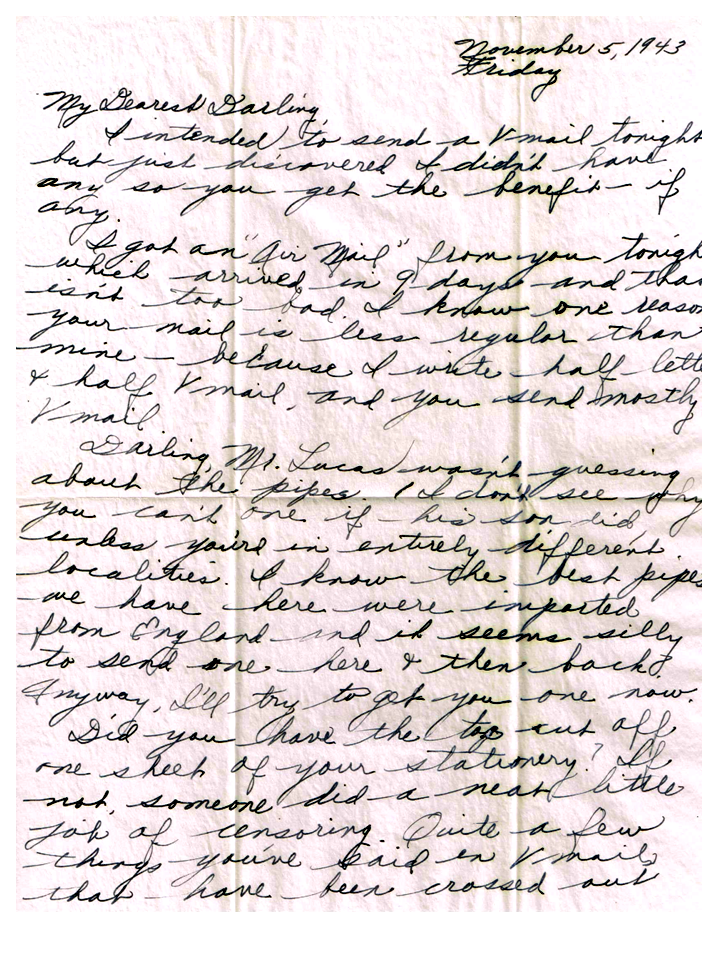 November 5, 1943
Friday
My Dearest Darling,
I intended to send a Vmail tonight
but just discovered I didn't have
any so you get the benefit - if
any.
I got an "Air Mail" from you tonigh
which arrived in 9 days and that
isn't too bad. I know one reason
your mail is less regular than
mine - because I write half lette
& half Vmail, and you send mostly
Vmail.
Darling, Mr. Lucas wasn't guessing
about the pipes. I don't see why
you can't one if his son did,
unless you're in entirely different
localities. I know the best pipes
we have here were imported
from England and it seems silly
to send one here & then back.
Anyway, I'll try to get you one now.
Did you have the top cut off
one sheet of your stationery? If
not, someone did a neat little
job of censoring. Quite a few
things you've said in Vmail
that have been crossed out